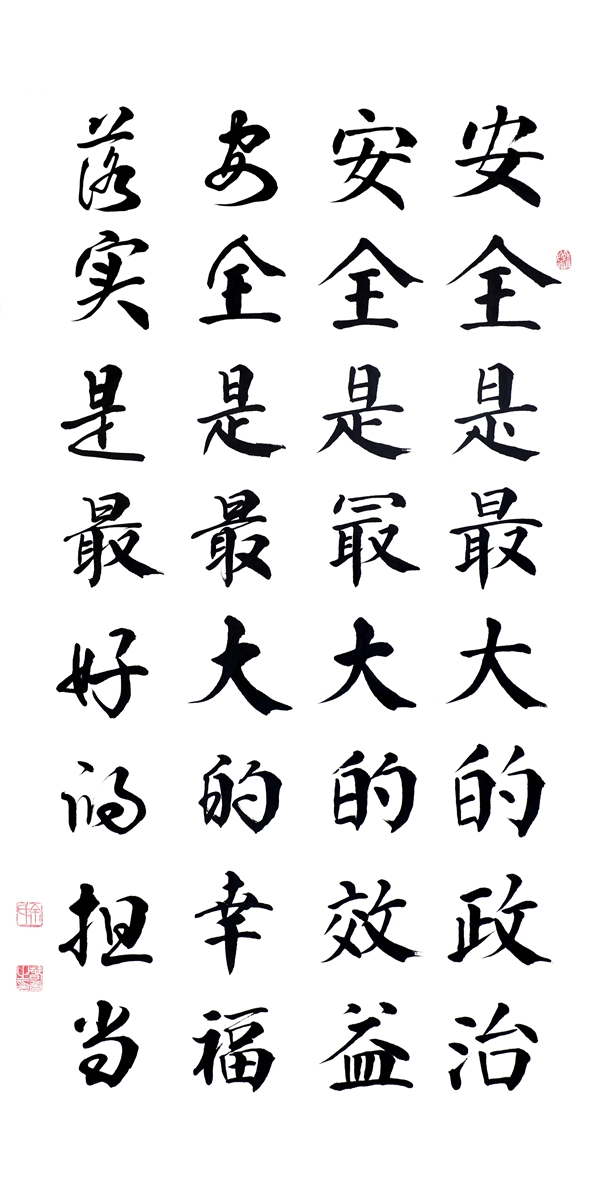 安全是最大的政治
安全是最大的效益
安全是最大的幸福
落实是最好的担当